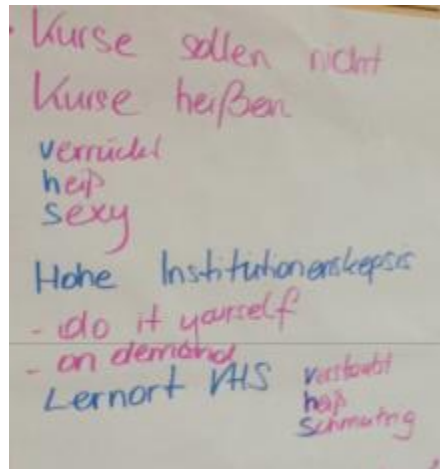 · Kurse sollen nicht
Kurse heißen
verrückt
heiß
sexy
Hohe Institutionenskepsis
- do it yourself
- on demand
Lernort VHS
verstaubt
heiß
schmutzig